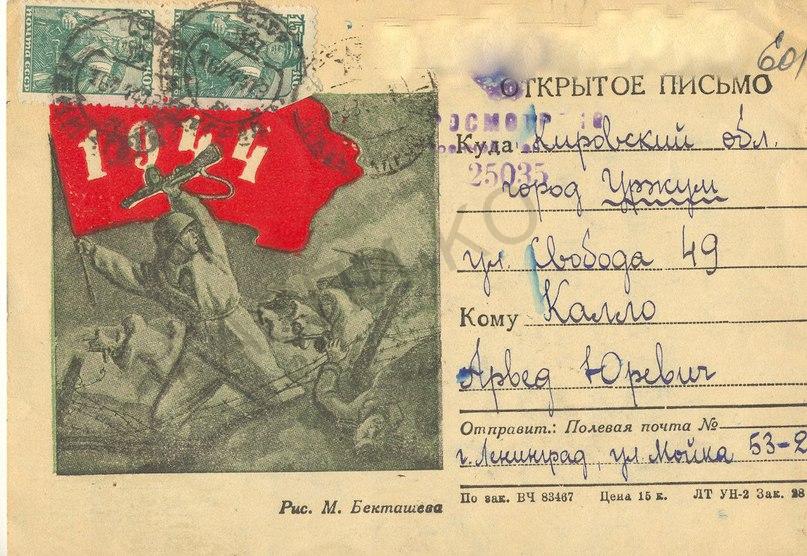 ПОЧТА СССР
601
ОТКРЫТОЕ ПИСЬМО
1944
25035
Куда Кировский обл.
город Уржум
ул Свобода 49
Кому Калло
Арвед Юревич
Отправит.: Полевая почта №
г. Ленинград, ул Мойка 53-2
Рис. М. Бекташева
По зак. ВЧ 83467 Цена 15 к. ЛТ УН-2 Зак. 28